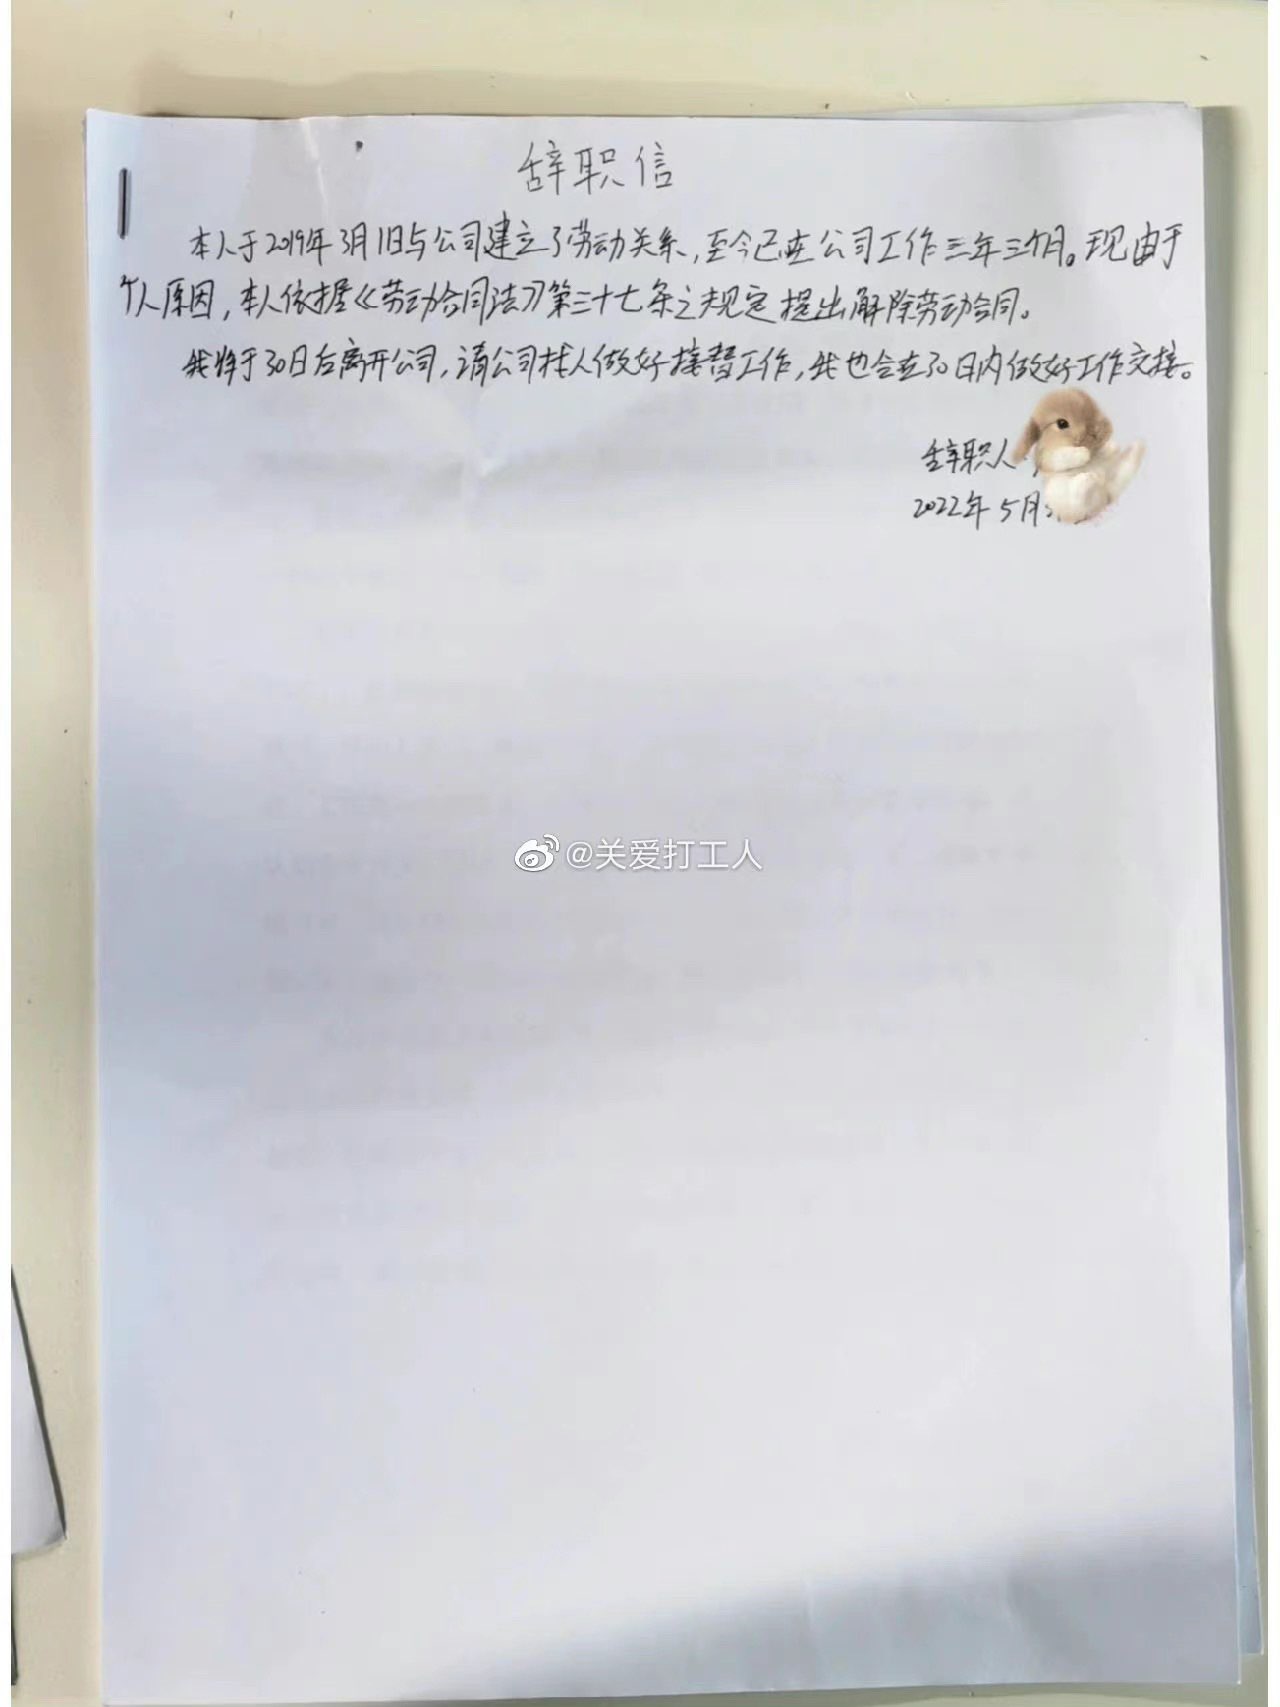 辞职信
本人于2019年3月1日与公司建立了劳动关系，至今已在公司工作三年三个月。现由于
个人原因，本人依据《劳动合同法》第三十七条之规定提出解除劳动合同。
我将于30日后离开公司，请公司找人做好接替工作，我也会在30日内做好工作交接。
辞职人
2022年5月
@关爱打工人